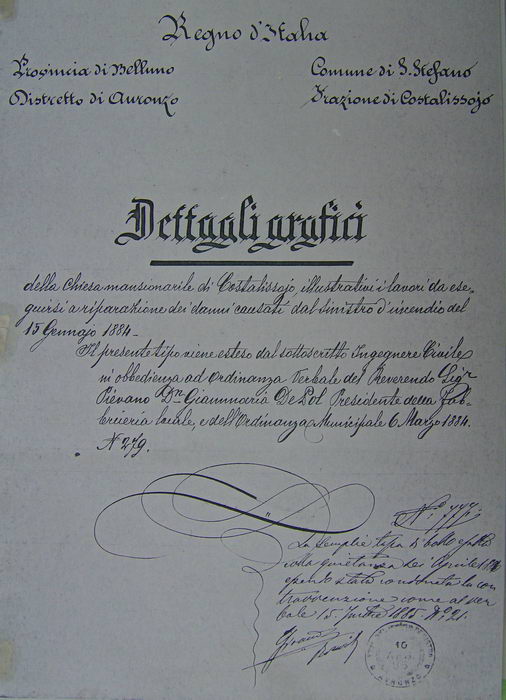 Regno d'Italia
Provincia di Belluno
Comune di S. Stefano
Distretto di Auronzo
Frazione di Costalissojo
Dettagli grafici
della chiesa mansionarile di Costalissojo, illustrativi i lavori da ese-
guirsi a riparazione dei danni causati dal sinistro d'incendio del
15 Gennajo 1884.
Il presente tipo viene esteso dal sottoscritto Ingegnere Civile
in obbedienza ad Ordinanza Verbale del Reverendo Sigr
Pievano Dn Giammaria De Pol Presidente della Fab-
bricieria locale, e dell'Ordinanza Municipale 6 Marzo 1884.
N 279.
No 777
La semplice tassa di bollo
colla quietanza
essendo stata la con
travvenzione come al ver
bale 15 1885. No 21.
10
AURONZO